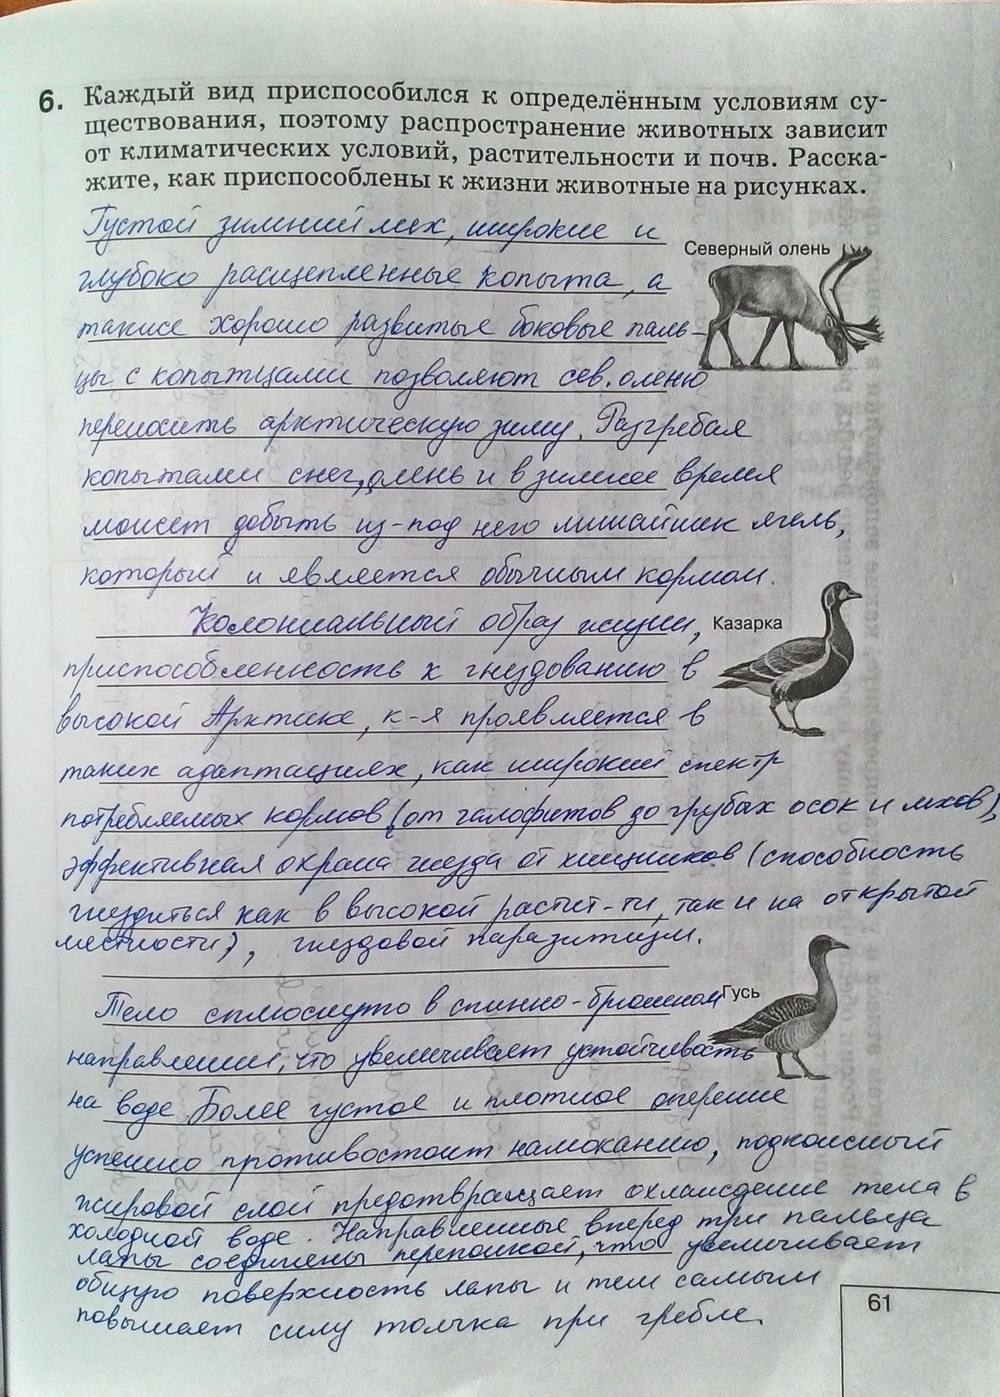 6. Каждый вид приспособился к определённым условиям су-
ществования, поэтому распространение животных зависит
от климатических условий, растительности и почв. Расска-
жите, как приспособлены к жизни животные на рисунках.
Густой зимний мех, широкие и
Северный олень
глубоко расщепленные копыта, а
также хорошо развитые боковые паль-
цы с копытцами позволяют сев. оленю
переносить арктическую зиму. Разгребая
копытами снег, олень и в зимнее время
может добыть из-под него лишайник ягель,
который и является обычным кормом.
Колониальный образ жизни,
Казарка
приспособленность к гнездованию в
высокой Арктике, к-я проявляется в
таких адаптациях, как широкий спектр
потребляемых кормов (от галофитов до грубых осок и мхов),
эффективная охрана гнезда от хищников (способность
гнездиться как в высокой растит-ти, так и на открытой
местности), гнездовой паразитизм.
Тело сплюснуто в спинно-брюшном
Гусь
направлении, что увеличивает устойчивость
на воде. Более густое и плотное оперение
успешно противостоит намоканию, подкожный
жировой слой предотвращает охлаждение тела в
холодной воде. Направленные вперед три пальца
лапы соединены перепонкой, что увеличивает
общую поверхность лапы и тем самым
повышает силу толчка при гребле.
61